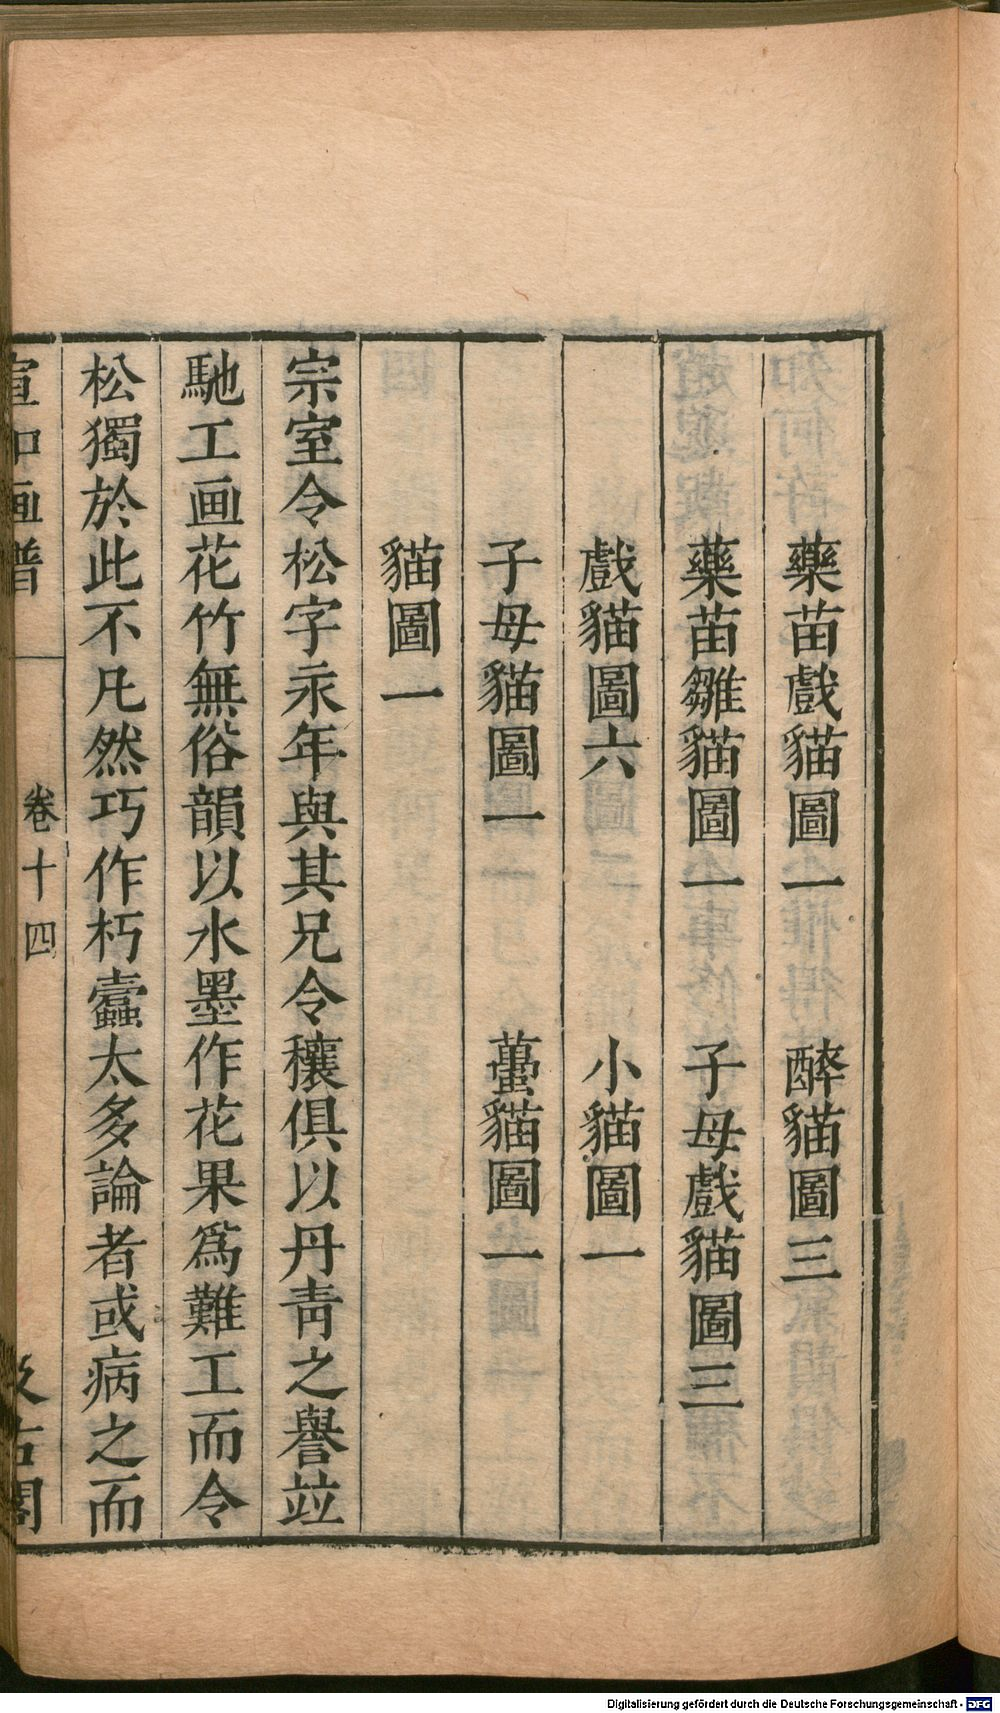 藥苗戲貓圖一 醉貓圖三
藥苗雛貓圖一 子母戲貓圖三
戲貓圖六 小貓圖一
子母貓圖一 蠆貓圖一
貓圖一
宗室令松字永年與其兄令穰俱以丹青之譽竝
馳工画花竹無俗韻以水墨作花果爲難工而令
松獨於此不凡然巧作朽蠹太多論者或病之而
宣和画譜 卷十四 汲古閣
Digitalisierung gefördert durch die Deutsche Forschungsgemeinschaft - DFG